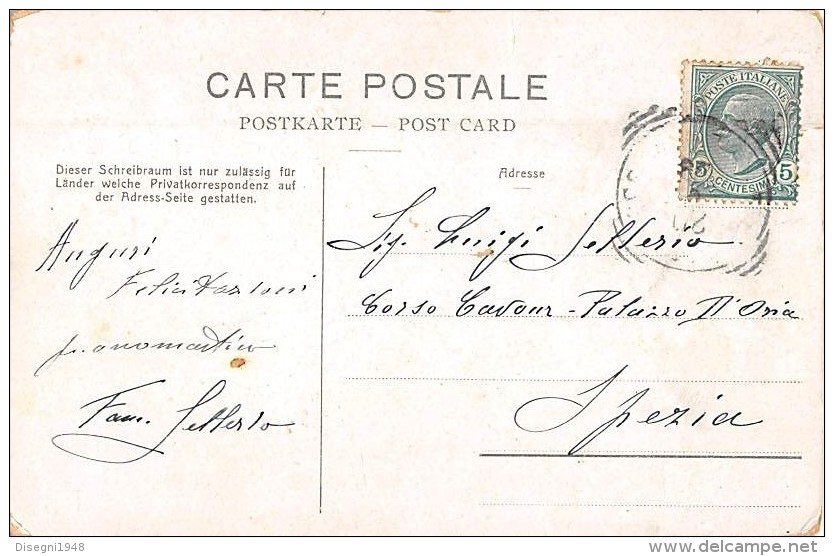 CARTE POSTALE
POSTKARTE — POST CARD
Dieser Schreibraum ist nur zulässig für
Länder welche Privatkorrespondenz auf
der Adress-Seite gestatten.
Adresse
POSTE ITALIANE
5 CENTESIMI 5
Auguri
Felicitazioni
Fam. Setterio
Sig. Luigi Setterio
Corso Cavour - Palazzo D'Oria
Spezia
Disegni1948
delcampe.net